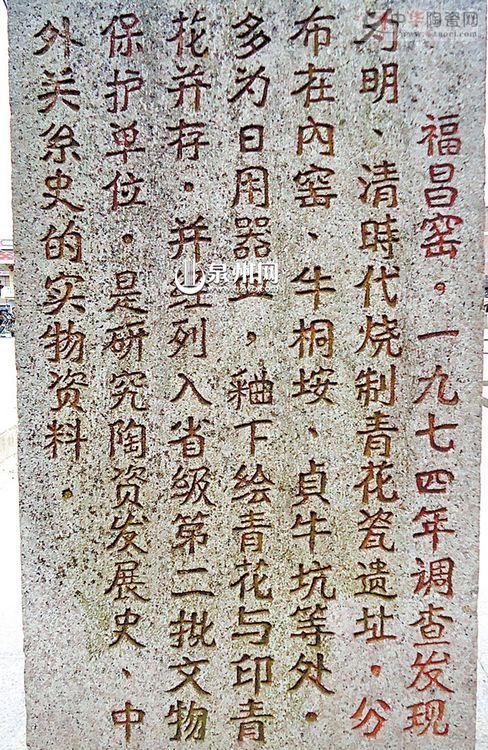 福昌窑。一九七四年调查发现
为明、清時代烧制青花瓷遗址。分
布在内窑、牛桐垵、貞牛坑等处。
多为日用器皿，釉下绘青花与印青
花并存。并经列入省级第二批文物
保护单位。是研究陶资发展史、中
外关系史的实物资料。
中华陶瓷网
泉州网